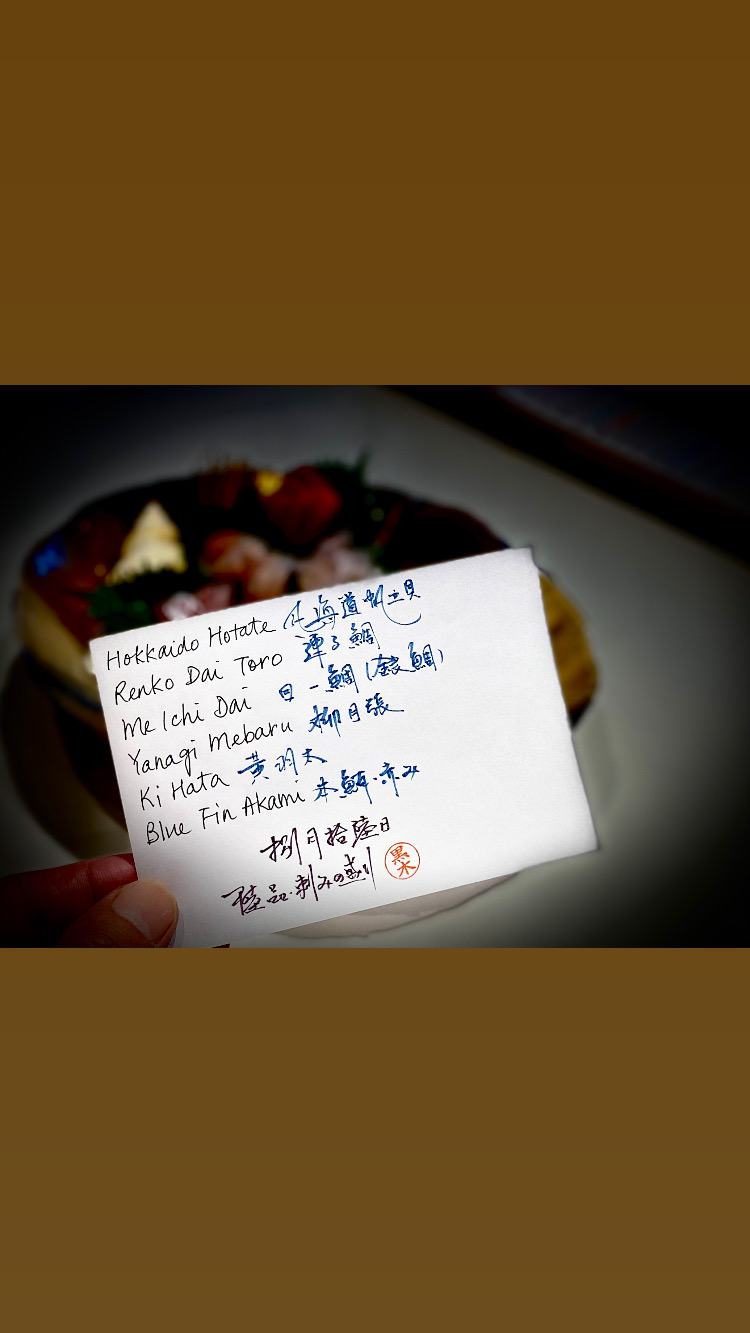 Hokkaido Hotate 北海道帆立貝
Renko Dai Toro 連子鯛
Me Ichi Dai 目一鯛 (銀鯛)
Yanagi Mebaru 柳目張
Ki Hata 黄羽太
Blue Fin Akami 本鮪·赤み
捌月拾陸日
陸品·刺みの盛り
黒木